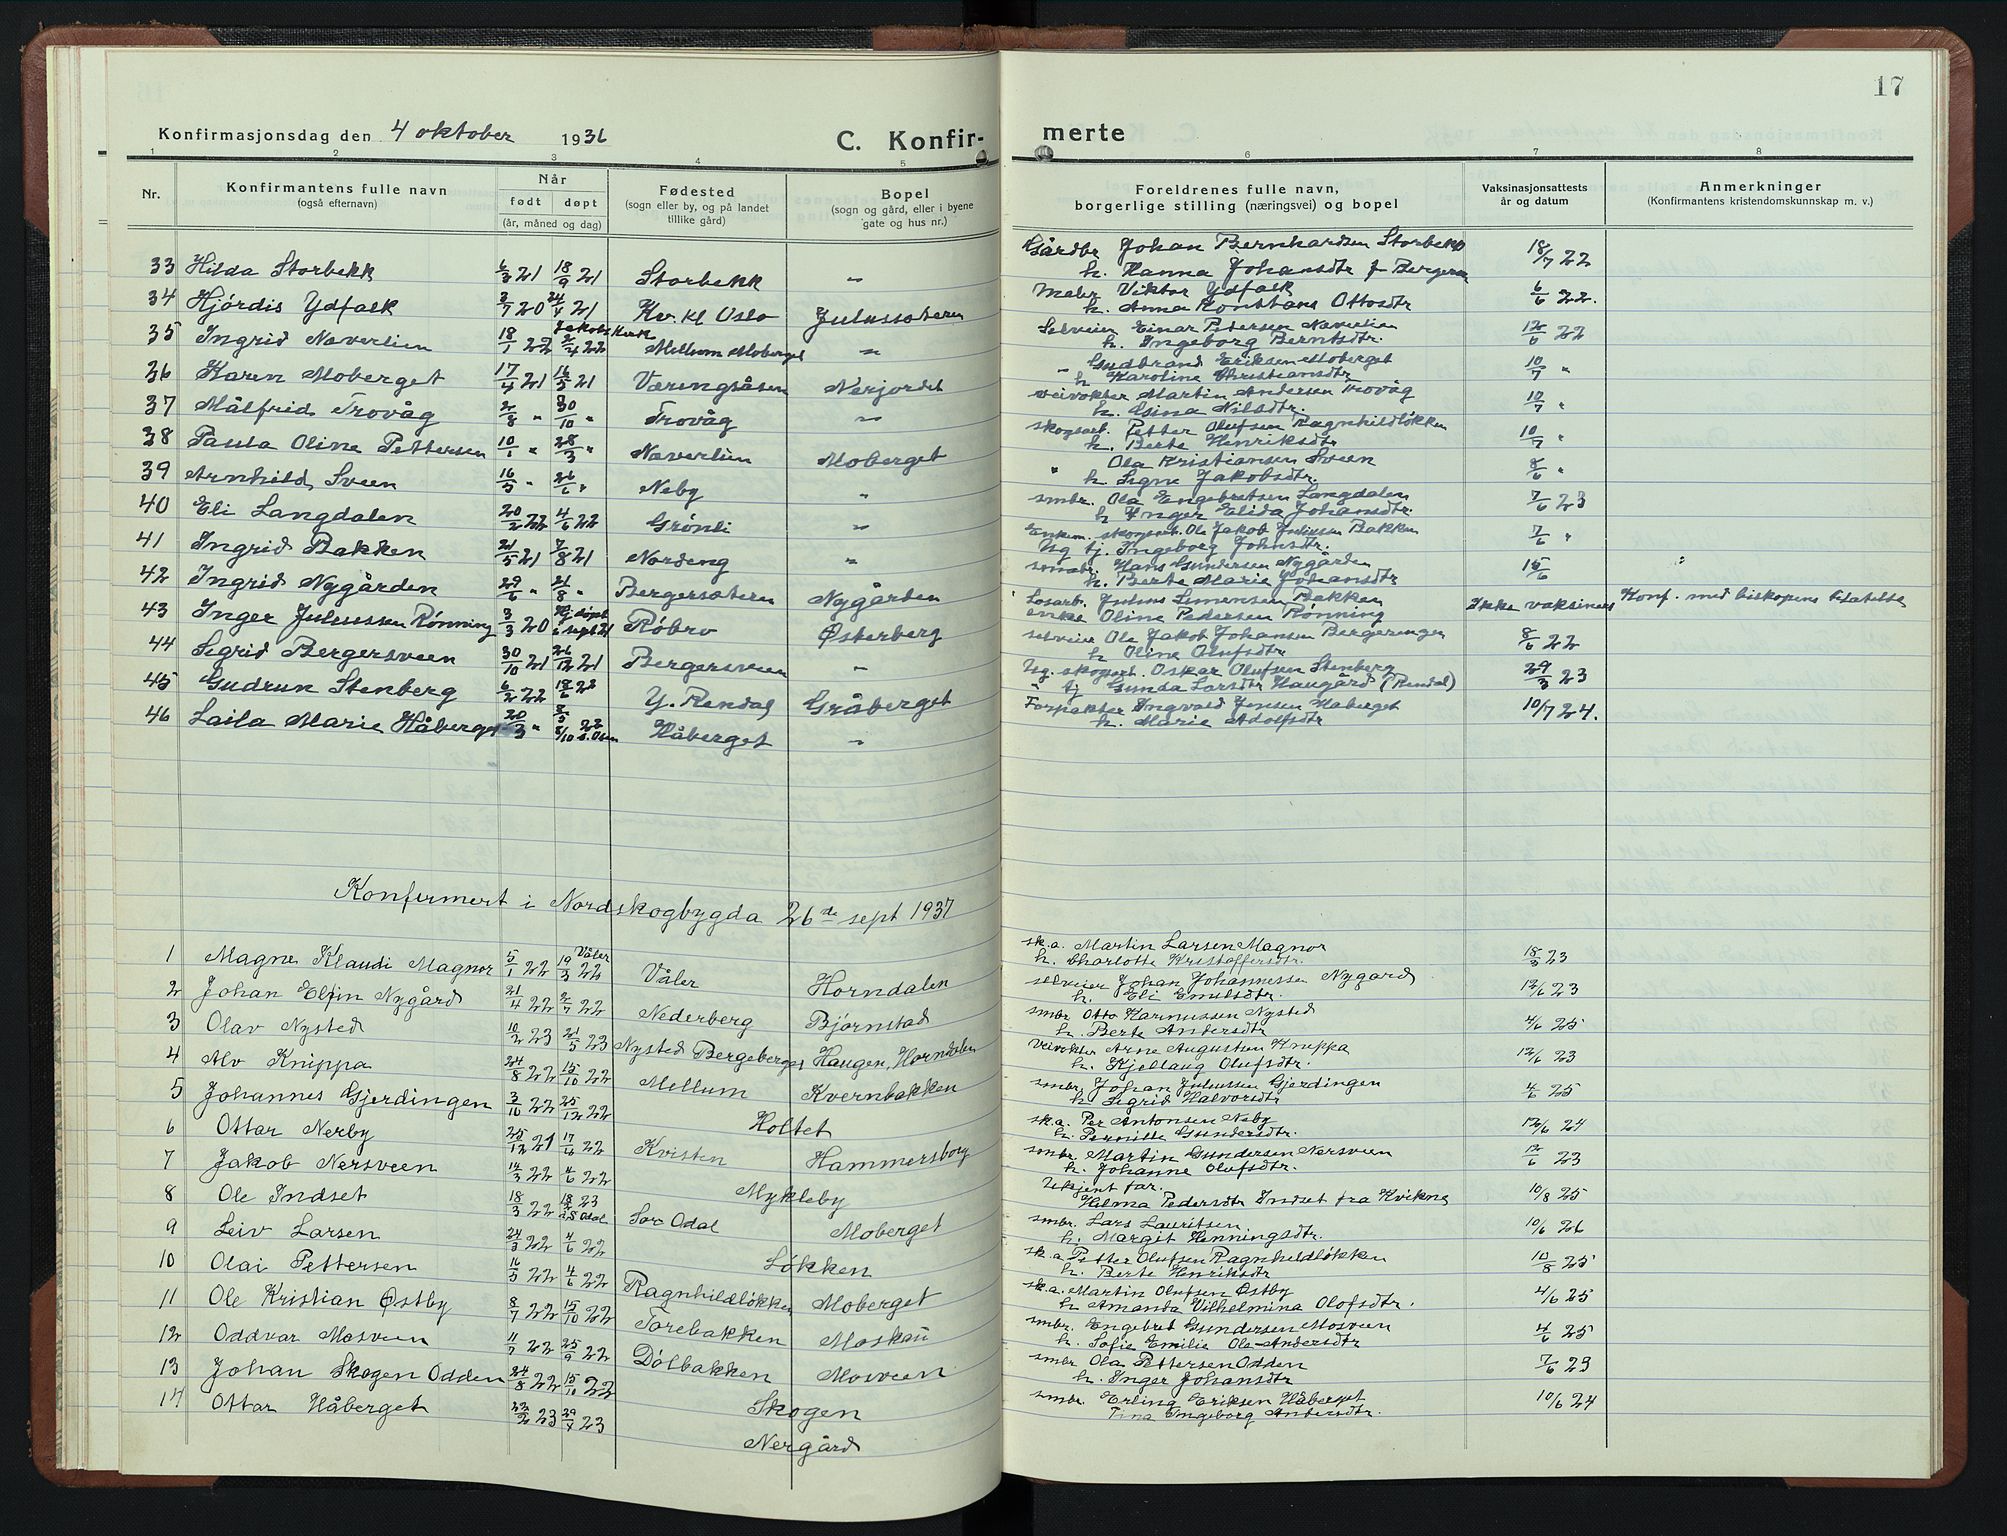 17
Konfirmasjonsdag den 4 oktober 1936
C. Konfir- merte
1 2 3 4 5 6 7 8
Nr.
Konfirmantens fulle navn
(også efternavn)
Når
født døpt
(år, måned og dag)
Fødested
(sogn eller by, og på landet
tillike gård)
Bopel
(sogn og gård, eller i byene
gate og hus nr.)
Foreldrenes fulle navn,
borgerlige stilling (næringsvei) og bopel
Vaksinasjonsattests
år og datum
Anmerkninger
(Konfirmantens kristendomskunnskap m. v.)
33 Hilda Storbekk 6/3 21 18/9 21 Storbekk — Gårdbr Johan Bernhardsen Storbekk 18/7 22
h. Hanna Johansdtr f
34 Hjørdis Ydfalk 3/7 20 24/4 21 Kv. kl Oslo Julussæteren Viktor Ydfalk 6/6 22.
Jakobs Kirke h. Anna Ottosdtr
35 Ingrid Næverlien 18/1 22 2/4 22 Mellum Moberget — Selveier Einar Petersen Næverlien 12/6 22
h. Ingeborg Berntsdtr.
36 Karen Moberget 17/4 21 16/5 21 Væringsåsen Nerjordet „ Gudbrand Eriksen Moberget 10/7 „
h Karoline Christiansdtr
37 Målfrid Trovåg 2/8 „ 30/10 „ Trovåg — veivokter Martin Andersen Trovåg 10/7 „
h. Gina Nilsdtr.
38 Paula Oline Pettersen 10/1 „ 28/3 „ Næverlien Moberget skogsarb. Petter Olufsen Ragnhildløkken 10/7 „
h. Berte Henriksdtr
39 Arnhild Sveen 16/5 „ 26/6 „ Neby „ „ Ola Kristiansen Sveen 8/6 „
h. Signe Jakobsdtr.
40 Eli Langdalen 20/2 22 4/6 22 Grønli — smbr. Ola Engebretsen Langdalen 7/6 23
h Inger Elida Johansdtr.
41 Ingrid Bakken 21/5 21 7/8 21 Nordeng — Enkem. skogsarb. Ole Jakob Juliussen Bakken 7/6 „
Ug tj. Ingeborg Johnsdtr.
42 Ingrid Nygården 29/6 „ 21/8 „ Bergersæteren Nygården smbr. Hans Gundersen Nygården 15/6 „
h. Berte Marie Johansdtr
43 Inger Juliussen Rønning 3/3 20 Hj.døpt i sept 21 Røbro Østerberg Losarb. Julius Simensen Bakken Ikke vaksinert Konf. med biskopens tilatelse
enke Oline Pedersen Rønning
44 Sigrid Bergersveen 30/10 21 26/12 21 Bergersveen — selveier Ole Jakob Johansen Bergerengen 8/6 22
h Oline Olufsdtr
45 Gudrun Stenberg 6/2 22 18/6 22 Y. Rendal Gråberget Ug. skogsarb. Oskar Olufsen Stenberg 29/3 23
" tj Gunda Larsdtr Haugård (Rendal)
46 Laila Marie Håberget 20/3 „ 5/10 22 Håberget — Forpakter Ingvald Jensen Håberget 10/7 24.
h. Marie Adolfsdtr
Konfirmert i Nordskogbygda 26de sept 1937
1 Magne Klaudi Magnor 5/1 22 Våler 19/3 22 Våler Horndalen sk.a. Martin Larsen Magnor 18/3 23
h. Charlotte Kristoffersdtr.
2 Johan Elfin Nygård 21/4 22 2/7 22 Nederberg Bjørnstad selveier Johan Johannessen Nygård 12/6 23
h. Eli Emilsdtr.
3 Olav Nysted 10/2 23 21/5 23 Nysted Bergeberget Haugen, Horndalen smbr Otto Karinussen Nysted 4/6 25
h. Berte Andersdtr
4 Alv Knippa 24/8 22 15/10 22 Mellum Kvernbakken Veivokter Arne Augustsen Knippa 12/6 23
h. Kjellaug Olufsdtr.
5 Johannes Gjerdingen 3/10 22 25/12 22 Holtet smbr. Johan Juliussen Gjerdingen 4/6 25
h Sigrid Halvorsdtr
6 Ottar Nerby 25/12 21 17/6 22 Kvisten Hammersborg sk.a. Per Antonsen Neby 12/6 24
h. Pernille Gundersdtr.
7 Jakob Nersveen 14/3 22 4/6 22 Mykleby smbr. Martin Gundersen Nersveen 12/6 23
h. Johanne Olufsdtr.
8 Ole Indset 18/3 22 18/2 23 S. Odal Sør Odal Moberget Ukjent far. 10/8 25
Helma Pedersdtr Indset fra Kvikne
9 Leiv Larsen 24/3 22 4/6 22 Løkken smbr. Lars Lauritsen 10/6 26
h. Margit Henningsdtr.
10 Olai Pettersen 16/5 22 4/6 22 Ragnhildløkken Moberget sk.a Petter Olufsen Ragnhildløkken 10/8 25
h. Berte Henriksdtr
11 Ole Kristian Østby 8/7 22 15/10 22 Torebakken Moskau sk.a. Martin Olufsen Østby 4/6 25
h Amanda Vilhelmina Olofsdtr.
12 Oddvar Mosveen 11/7 22 25/9 22 Dølbakken Mosveen smbr. Engebret Gundersen Mosveen 4/6 25
h. Sofie Emilie Ole-Andersdtr
13 Johan Skogen Odden 24/8 22 15/10 22 Skogen smbr Ola Pettersen Odden 7/6 23
h. Inger Johansdtr
14 Ottar Håberget 22/2 23 29/4 23 Nergård smbr. Erling Eriksen Håberget 10/6 24
Tina Ingeborg Andersdtr.